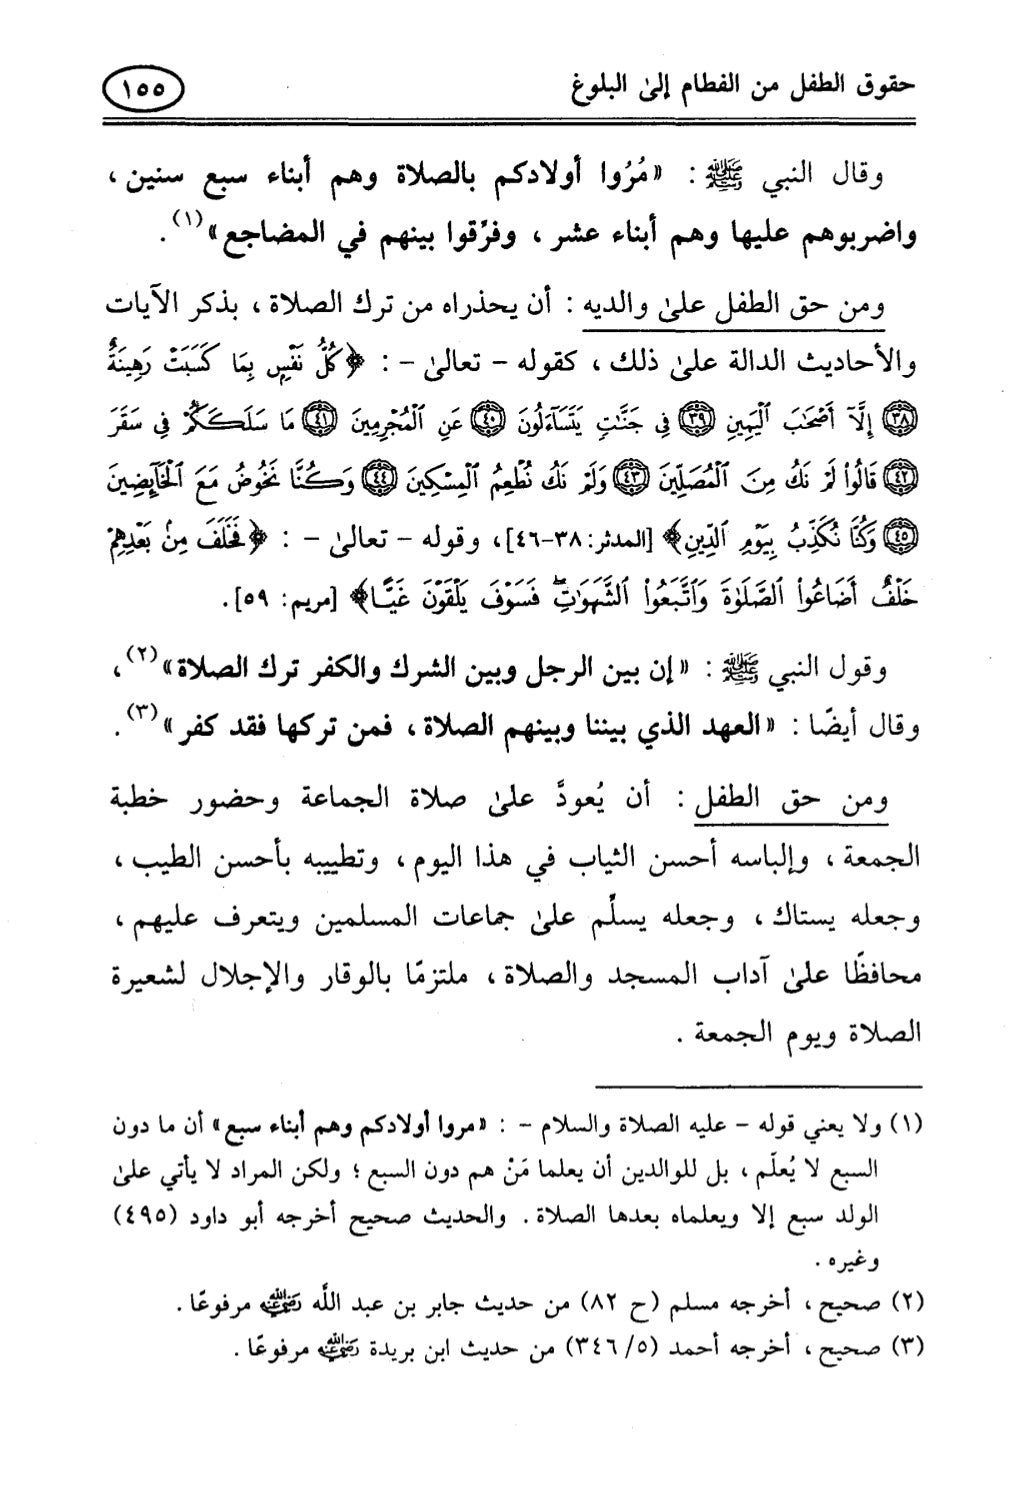 حقوق الطفل من الفطام إلىٰ البلوغ
١٥٥
وقال النبي ﷺ : «مُرُوا أولادكم بالصلاة وهم أبناء سبع سنين ،
واضربوهم عليها وهم أبناء عشر ، وفرِّقوا بينهم في المضاجع»(١) .
ومن حق الطفل علىٰ والديه : أن يحذراه من ترك الصلاة ، بذكر الآيات
والأحاديث الدالة علىٰ ذلك ، كقوله - تعالىٰ - : ﴿كُلُّ نَفْسٍ بِمَا كَسَبَتْ رَهِينَةٌ
﴿٣٨﴾ إِلَّآ أَصْحَٰبَ ٱلْيَمِينِ ﴿٣٩﴾ فِى جَنَّٰتٍ يَتَسَآءَلُونَ ﴿٤٠﴾ عَنِ ٱلْمُجْرِمِينَ ﴿٤١﴾ مَا سَلَكَكُمْ فِى سَقَرَ
﴿٤٢﴾ قَالُوا۟ لَمْ نَكُ مِنَ ٱلْمُصَلِّينَ ﴿٤٣﴾ وَلَمْ نَكُ نُطْعِمُ ٱلْمِسْكِينَ ﴿٤٤﴾ وَكُنَّا نَخُوضُ مَعَ ٱلْخَآئِضِينَ
﴿٤٥﴾ وَكُنَّا نُكَذِّبُ بِيَوْمِ ٱلدِّينِ﴾ [المدثر: ٣٨-٤٦]، وقوله - تعالىٰ - : ﴿فَخَلَفَ مِنۢ بَعْدِهِمْ
خَلْفٌ أَضَاعُوا۟ ٱلصَّلَوٰةَ وَٱتَّبَعُوا۟ ٱلشَّهَوَٰتِ ۖ فَسَوْفَ يَلْقَوْنَ غَيًّا﴾ [مريم: ٥٩].
وقول النبي ﷺ : «إن بين الرجل وبين الشرك والكفر ترك الصلاة»(٢)،
وقال أيضًا : «العهد الذي بيننا وبينهم الصلاة ، فمن تركها فقد كفر»(٣) .
ومن حق الطفل : أن يُعودَّ علىٰ صلاة الجماعة وحضور خطبة
الجمعة ، وإلباسه أحسن الثياب في هذا اليوم ، وتطييبه بأحسن الطيب ،
وجعله يستاك ، وجعله يسلِّم علىٰ جماعات المسلمين ويتعرف عليهم ،
محافظًا علىٰ آداب المسجد والصلاة ، ملتزمًا بالوقار والإجلال لشعيرة
الصلاة ويوم الجمعة .
(١) ولا يعني قوله - عليه الصلاة والسلام - : «مروا أولادكم وهم أبناء سبع» أن ما دون
السبع لا يُعلَّم ، بل للوالدين أن يعلما مَنْ هم دون السبع ؛ ولكن المراد لا يأتي علىٰ
الولد سبع إلا ويعلماه بعدها الصلاة . والحديث صحيح أخرجه أبو داود (٤٩٥)
وغيره .
(٢) صحيح ، أخرجه مسلم (ح ٨٢) من حديث جابر بن عبد اللَّه رضي الله عنه مرفوعًا .
(٣) صحيح ، أخرجه أحمد (٥/ ٣٤٦) من حديث ابن بريدة رضي الله عنه مرفوعًا .